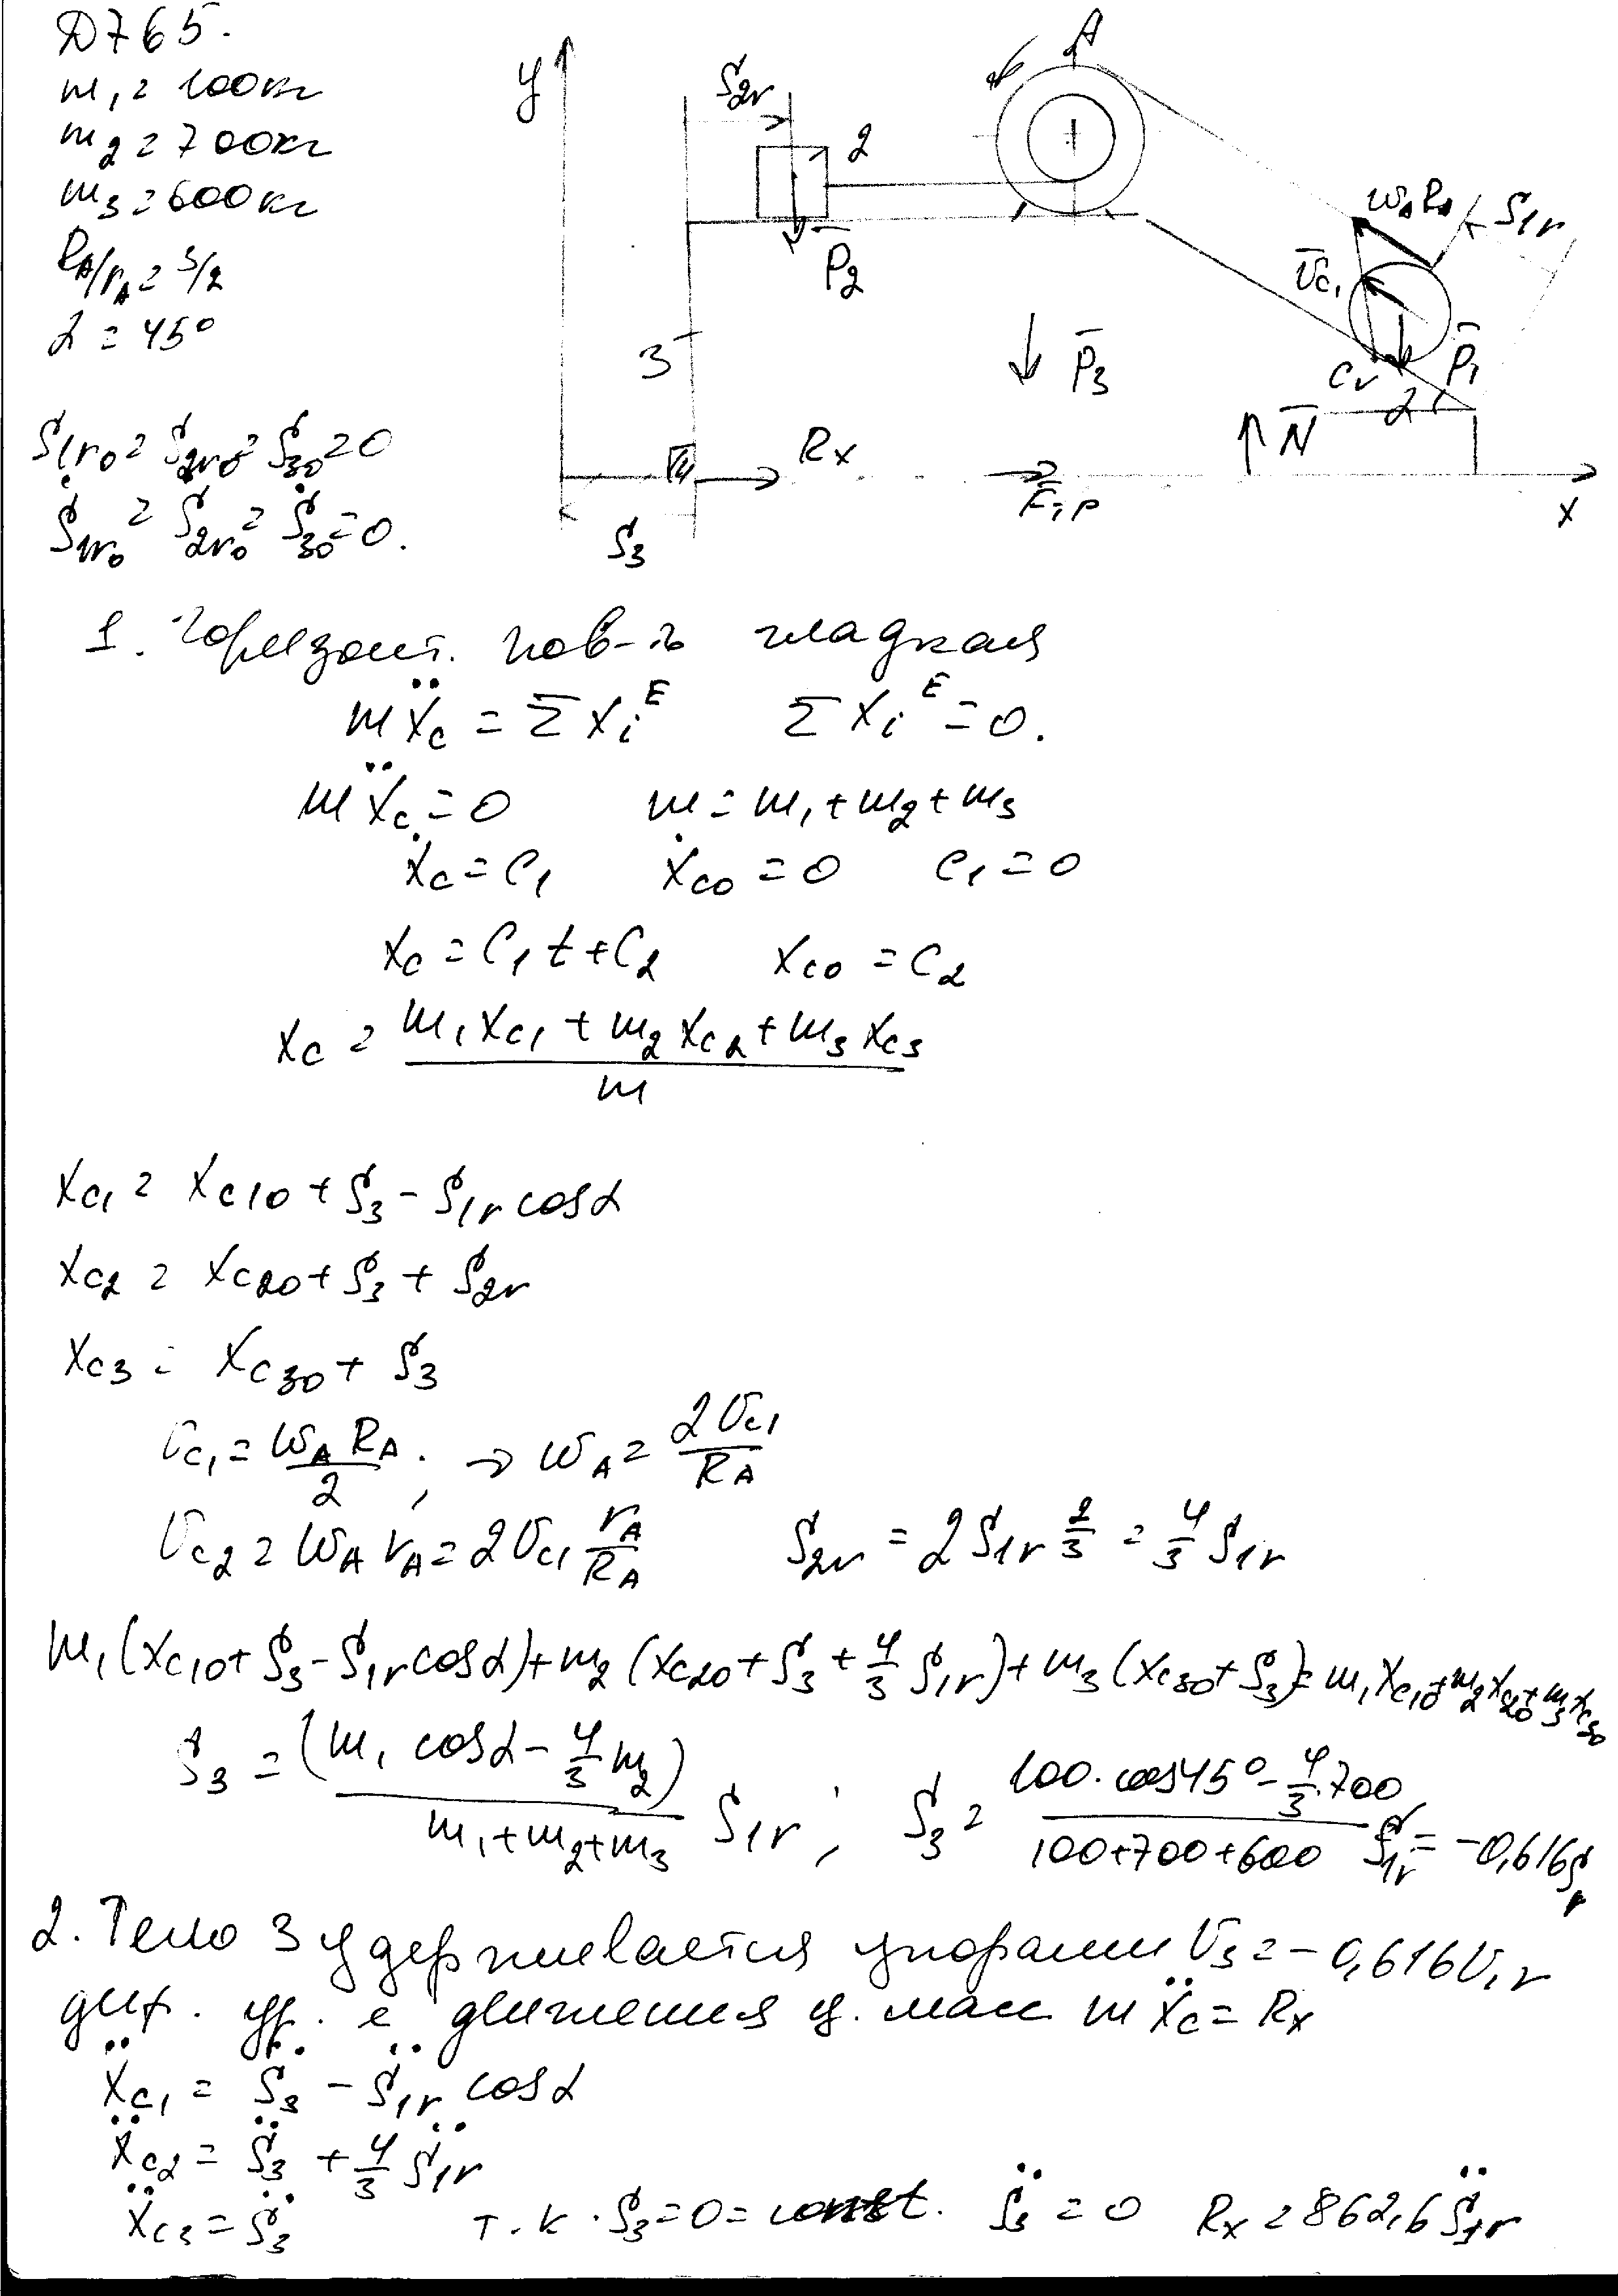 Д 765.
m₁ = 100кг
m₂ = 700кг
m₃ = 600кг
R_A/r_A = 3/2
α = 45°
S₁r₀ = S₂r₀ = S₃₀ = 0
Ṡ₁r₀ = Ṡ₂r₀ = Ṡ₃₀ = 0.
y
S₂r
A
2
P̄₂
ω_A R_A
S₁r
V̄c₁
P̄₁
Cv
α
3
P̄₃
N̄
Rx
F̄тр
x
S₃
1. Горизонт. пов-ть гладкая
mẍc = Σxᵢᴱ Σxᵢᴱ = 0.
mẍc = 0 m = m₁ + m₂ + m₃
ẋc = C₁ ẋc₀ = 0 C₁ = 0
xc = C₁t + C₂ xc₀ = C₂
xc = (m₁xc₁ + m₂xc₂ + m₃xc₃)/m
xc₁ = xc₁₀ + S₃ - S₁r cosα
xc₂ = xc₂₀ + S₃ + S₂r
xc₃ = xc₃₀ + S₃
Vc₁ = ω_A R_A/2 ; → ω_A = 2Vc₁/R_A
Vc₂ = ω_A r_A = 2Vc₁ r_A/R_A S₂r = 2S₁r 2/3 = 4/3 S₁r
m₁(xc₁₀ + S₃ - S₁r cosα) + m₂(xc₂₀ + S₃ + 4/3 S₁r) + m₃(xc₃₀ + S₃) = m₁xc₁₀ + m₂xc₂₀ + m₃xc₃₀
S₃ = (m₁ cosα - 4/3 m₂)/(m₁ + m₂ + m₃) S₁r ; S₃ = (100·cos45° - 4/3·700)/(100+700+600) S₁r = -0,616S₁r
2. Тело 3 удерживается упорами V₃ = -0,616V₁r
диф. ур. е движения ц. масс mẍc = Rx
ẍc₁ = S̈₃ - S̈₁r cosα
ẍc₂ = S̈₃ + 4/3 S̈₁r
ẍc₃ = S̈₃ т.к. S₃ = 0 = const. S̈₃ = 0 Rx = 862,6 S̈₁r